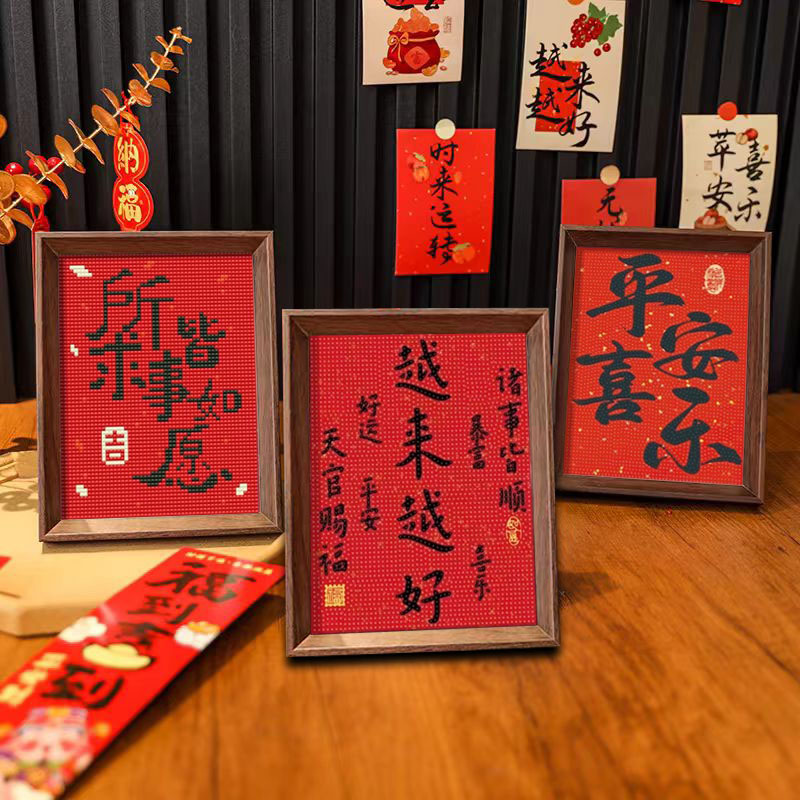 越来
越好
时来运转
无
喜乐
苹安
納福
所求
皆
事如
愿
吉
诸事皆顺
暴富
喜乐
越来越好
好运
平安
天官赐福
平安
喜乐
福到
到